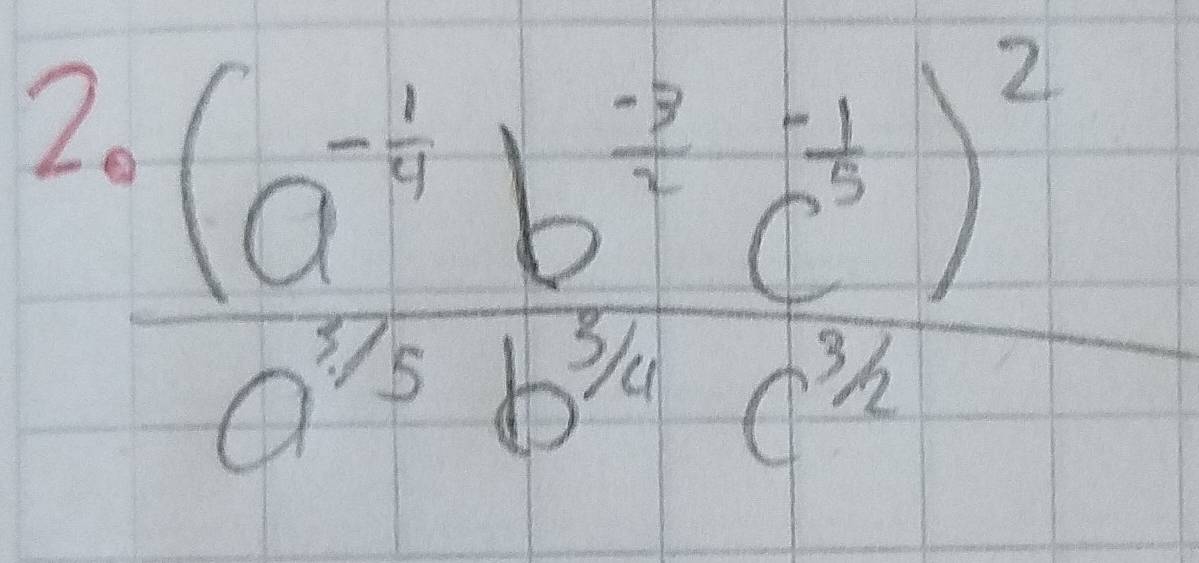 2. (a^{-\frac{1}{4}} b^{\frac{-3}{2}} c^{\frac{-1}{5}})^2
a^{3/5} b^{3/4} c^{3/2}